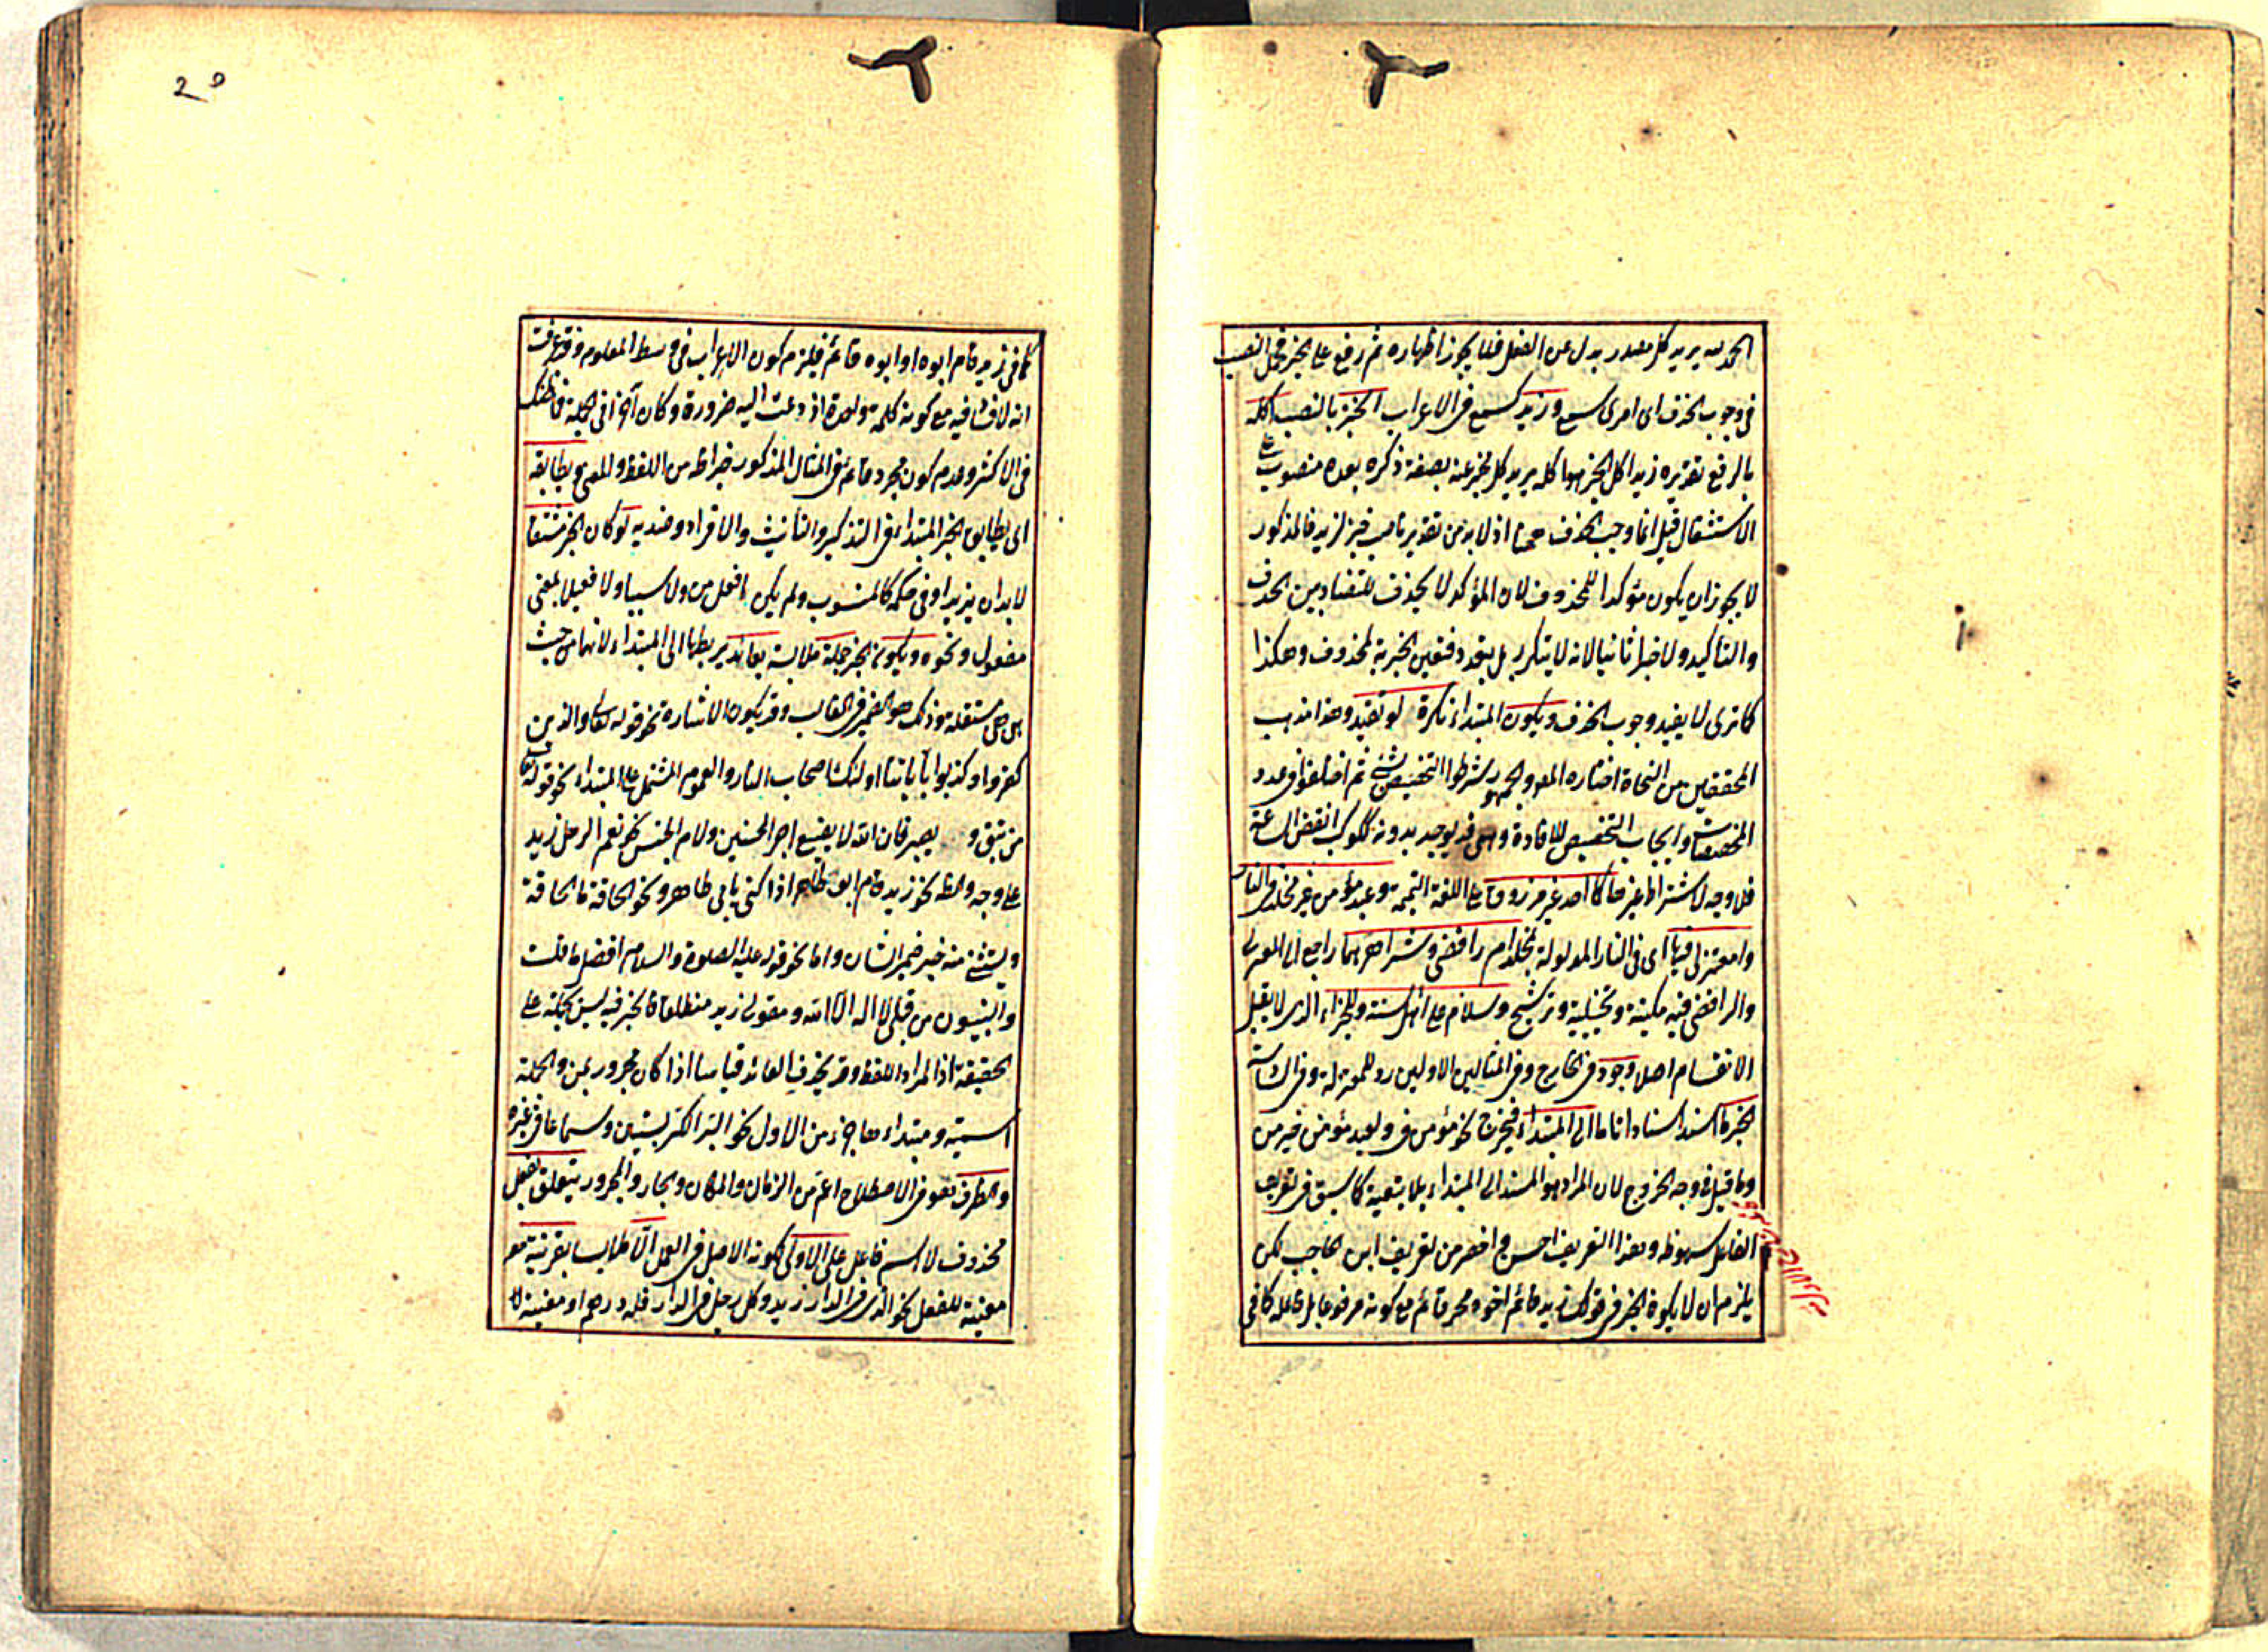 الحمد لله يريد كل مصدر بدل عن الفعل فلا يجوز اظهاره ثم رفع على الخبر محل النصب
في وجوب الحذف اى امرى سمع وزيد سمع في الاعراب الخبز بالنصب اكله
بالرفع تقديره زيدا كل الخبز هو اكله يريد كل مخبر عنه بصفة ذكره بعده منصوب على
الاشتغال قيل انما وجب الحذف اذ لا بد من تقدير ناصب فيز لزيد فالمذكور
لا يجوز ان يكون مؤكدا للمحذوف لان المؤكد لا يحذف للتضاد بين الحذف
والتأكيد ولا خبرا ثانيا لانه لا يتكرر بل يتعدد فتعين الخبرية لمحذوف وهكذا
كما ترى لا يفيد وجوب الحذف ويكون المبتداء نكرة لو تفيد وهذا مذهب
المحققين من النحاة اختاره المص والجمهور شرطوا التخصيص بشئ ثم اختلفوا في عدد
المخصصات وايجاب التخصيص للافادة وهى قد يوجد بدونه ككوكب انقض الساعة
فلا وجه لاشتراط غيرها كما احد غير مرزوق على اللغة التميمية وعبد مؤمن غير مخلد في النار
وا معتزلى فيها اى في النار المدلولة بمخلد ام رافضى وشر اهر هما راجع الى المعتزلى
والرافضى فيه مكنية وتخييلية وترشيح وسلام على اهل السنة وللجزء الذى لا يقبل
الانقسام اصلا وجود في الخارج وفي المثالين الاولين رد للمعتزلة وفي
الخبر ما اسند اسنادا تاما الى المبتداء فيخرج نحو مؤمن في ولعبد مؤمن خير من
وما قيل في وجه الخروج لان المراد هو المسند الى المبتداء بلا تبعية كما سبق في تعريف
الفاعل سهو ظ وهذا التعريف احسن واخصر من تعريف ابن الحاجب لكن
يلزم ان لا يكون الخبر في قولك زيد قائم اخوه مجرد قائم مع كونه مرفوعا بل مع فاعله كما في
كما في زيد قام ابوه او ابوه قائم فيلزم كون الاعراب في وسط المعلوم وقد عرفت
انه لا فساد فيه مع كونه كلمة واحدة اذ دعت اليه ضرورة وكان آخرا في الجملة
في الاكثر وعدم كون مجرد قائم في المثال المذكور خبرا ظ من اللفظ والمعنى ويطابقه
اى يطابق الخبر المبتداء في التذكير والتأنيث والافراد وضديه لو كان الخبر مشتقا
لابدان يزيد او في حكمه كالمنسوب ولم يكن افعل من ولا سببيا ولا فعيلا بمعنى
مفعول ونحوه ويكون الخبر جملة ملابسة بعائد يربطها الى المبتداء لانها من حيث
هى هى مستقلة وذلك هو الضمير في الغالب وقد يكون الاشارة نحو قوله تعالى والذين
كفروا وكذبوا بآياتنا اولئك اصحاب النار والعموم المشتمل على المبتداء نحو قوله تعالى
من يتق ويصبر فان الله لا يضيع اجر المحسنين ولام الجنس نحو نعم الرجل زيد
على وجه والظ نحو زيد قام ابو طاهر اذا كنى بابى طاهر ونحو الحاقة ما الحاقة
ويستثنى منه خبر ضمير الشان واما نحو قوله عليه الصلوة والسلام افضل ما قلت
والنبيون من قبلى لا اله الا الله ومقولى زيد منطلق فالخبر فيه ليس بجملة على
الحقيقة اذ المراد اللفظ وقد يحذف العائد قياسا اذا كان مجرور بمن والجملة
اسمية ومبتداءها جزء من الاول نحو البر الكر بستين وسماعا في غيره
والظرف هو في الاصطلاح اعم من الزمان والمكان والجار والمجرور يتعلق بفعل
محذوف لا اسم فاعل على الاولى لكونه الاصل في العمل الا بقرينة
معينة للفعل نحو الذى في الدار زيد وكل رجل في الدار فله درهم او معينة